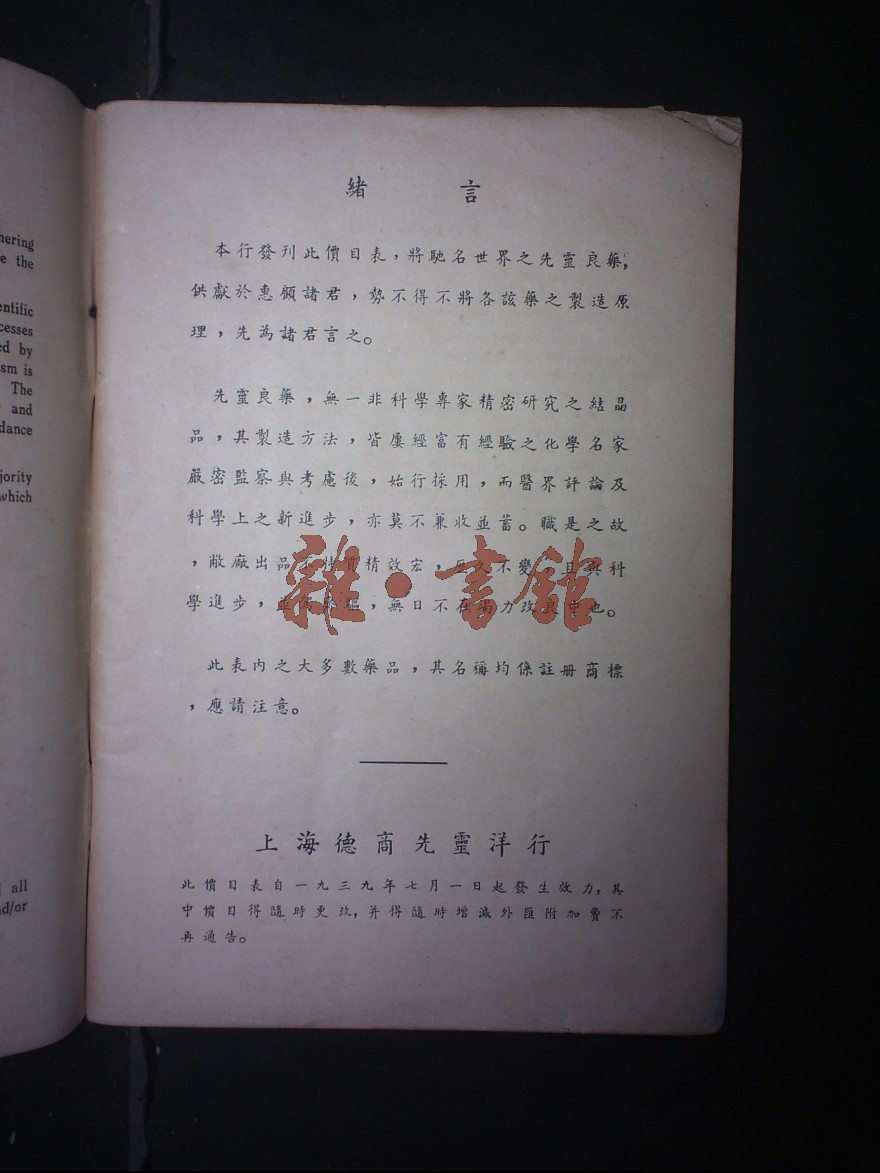 hering
e the
entific
cesses
ed by
sm is
The
and
dance
jority
which
all
d/or
緒言
本行發刊此價目表，將馳名世界之先靈良藥，
供獻於惠顧諸君，勢不得不將各該藥之製造原
理，先為諸君言之。
先靈良藥，無一非科學專家精密研究之結晶
品，其製造方法，皆屢經富有經驗之化學名家
嚴密監察與考慮後，始行採用，而醫界評論及
科學上之新進步，亦莫不兼收並蓄。職是之故
，敝廠出品不特質精效宏，歷久不變，且與科
學進步，並駕齊驅，無日不在竭力改良中也。
此表內之大多數藥品，其名稱均係註册商標
，應請注意。
上海德商先靈洋行
此價目表自一九三九年七月一日起發生效力，其
中價目得隨時更改，并得隨時增減外匯附加費不
再通告。
雜·書館